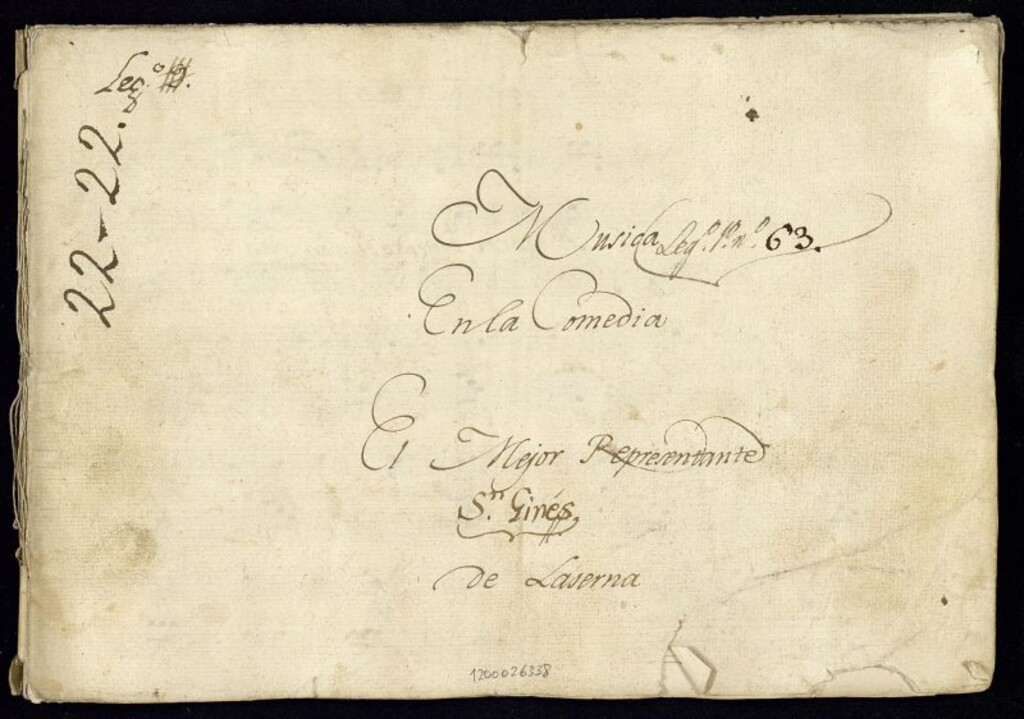 Leg.º
22-22.
Musica Leg.º 1º n.º 63.
En la Comedia
El Mejor Representante
S.n Ginés,
de Laserna
1200026338